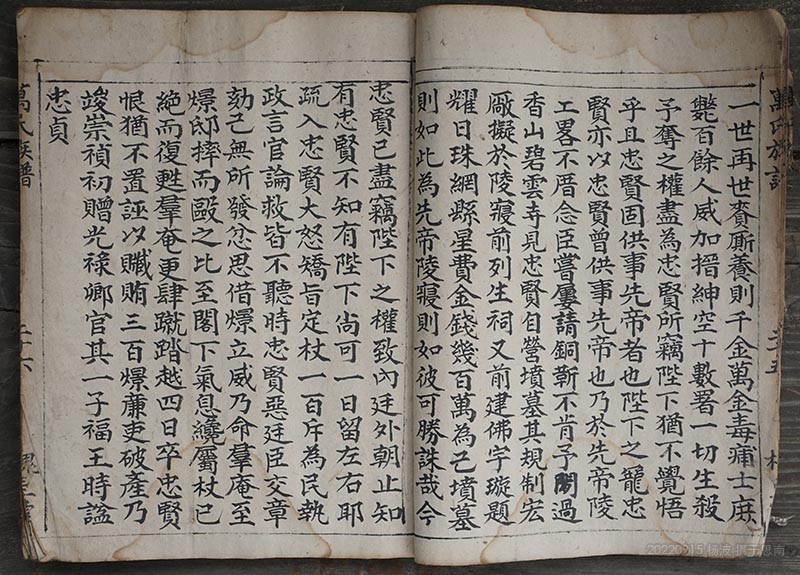 萬氏族譜
二十五
一世再世賚廝養則千金萬金毒痡士庶
斃百餘人威加搢紳空十數署一切生殺
予奪之權盡為忠賢所竊陛下猶不覺悟
乎且忠賢固供事先帝者也陛下之寵忠
賢亦以忠賢曾供事先帝也乃於先帝陵
工畧不厝念臣嘗屢請銅靳不肯予閒過
香山碧雲寺見忠賢自營墳墓其規制宏
厰擬於陵寢前列生祠又前建佛宇璇題
耀日珠網縣星費金錢幾百萬為己墳墓
則如此為先帝陵寢則如彼可勝誅哉今
忠賢已盡竊陛下之權致內廷外朝止知
有忠賢不知有陛下尚可一日留左右耶
疏入忠賢大怒矯旨定杖一百斥為民執
政言官論救皆不聽時忠賢惡廷臣交章
劾己無所發忿思借燝立威乃命羣奄至
燝邸摔而毆之比至閣下氣息纔屬杖已
絕而復甦羣奄更肆蹴踏越四日卒忠賢
恨猶不置誣以贓賄三百燝廉吏破產乃
竣崇禎初贈光祿卿官其一子福王時謚
忠貞
萬氏族譜
二十六
20220915 杨波 摄于思南